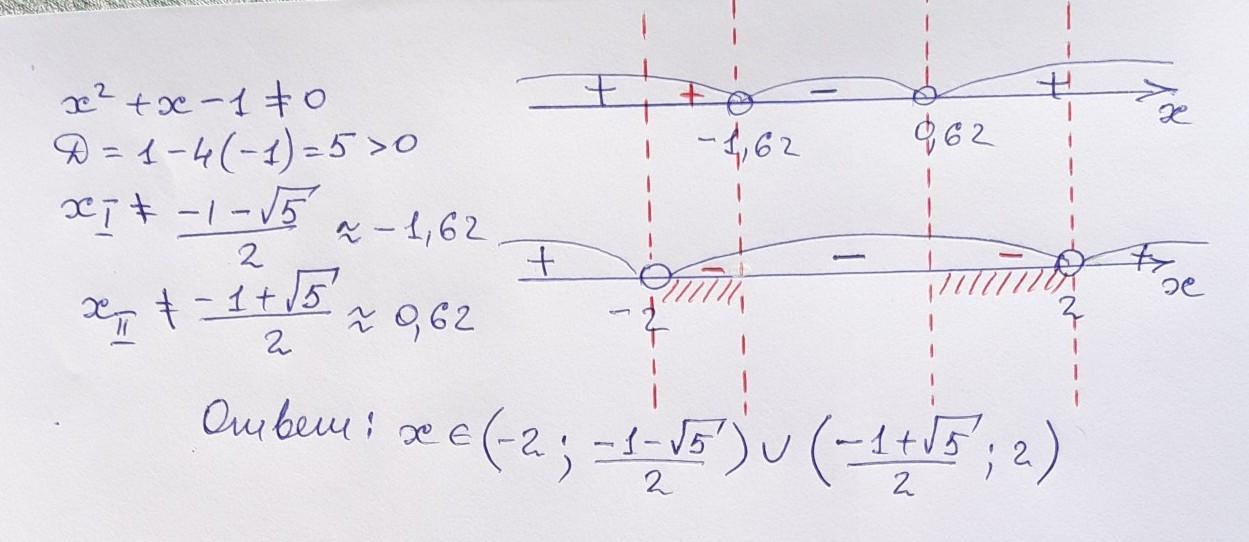 x² + x - 1 ≠ 0
D = 1 - 4(-1) = 5 > 0
x_I ≠ (-1 - √5)/2 ≈ -1,62
x_II ≠ (-1 + √5)/2 ≈ 0,62
+ + - +
-1,62 0,62 x
+ - - - +
-2 2 x
Ответ: x ∈ (-2; (-1-√5)/2) ∪ ((-1+√5)/2; 2)